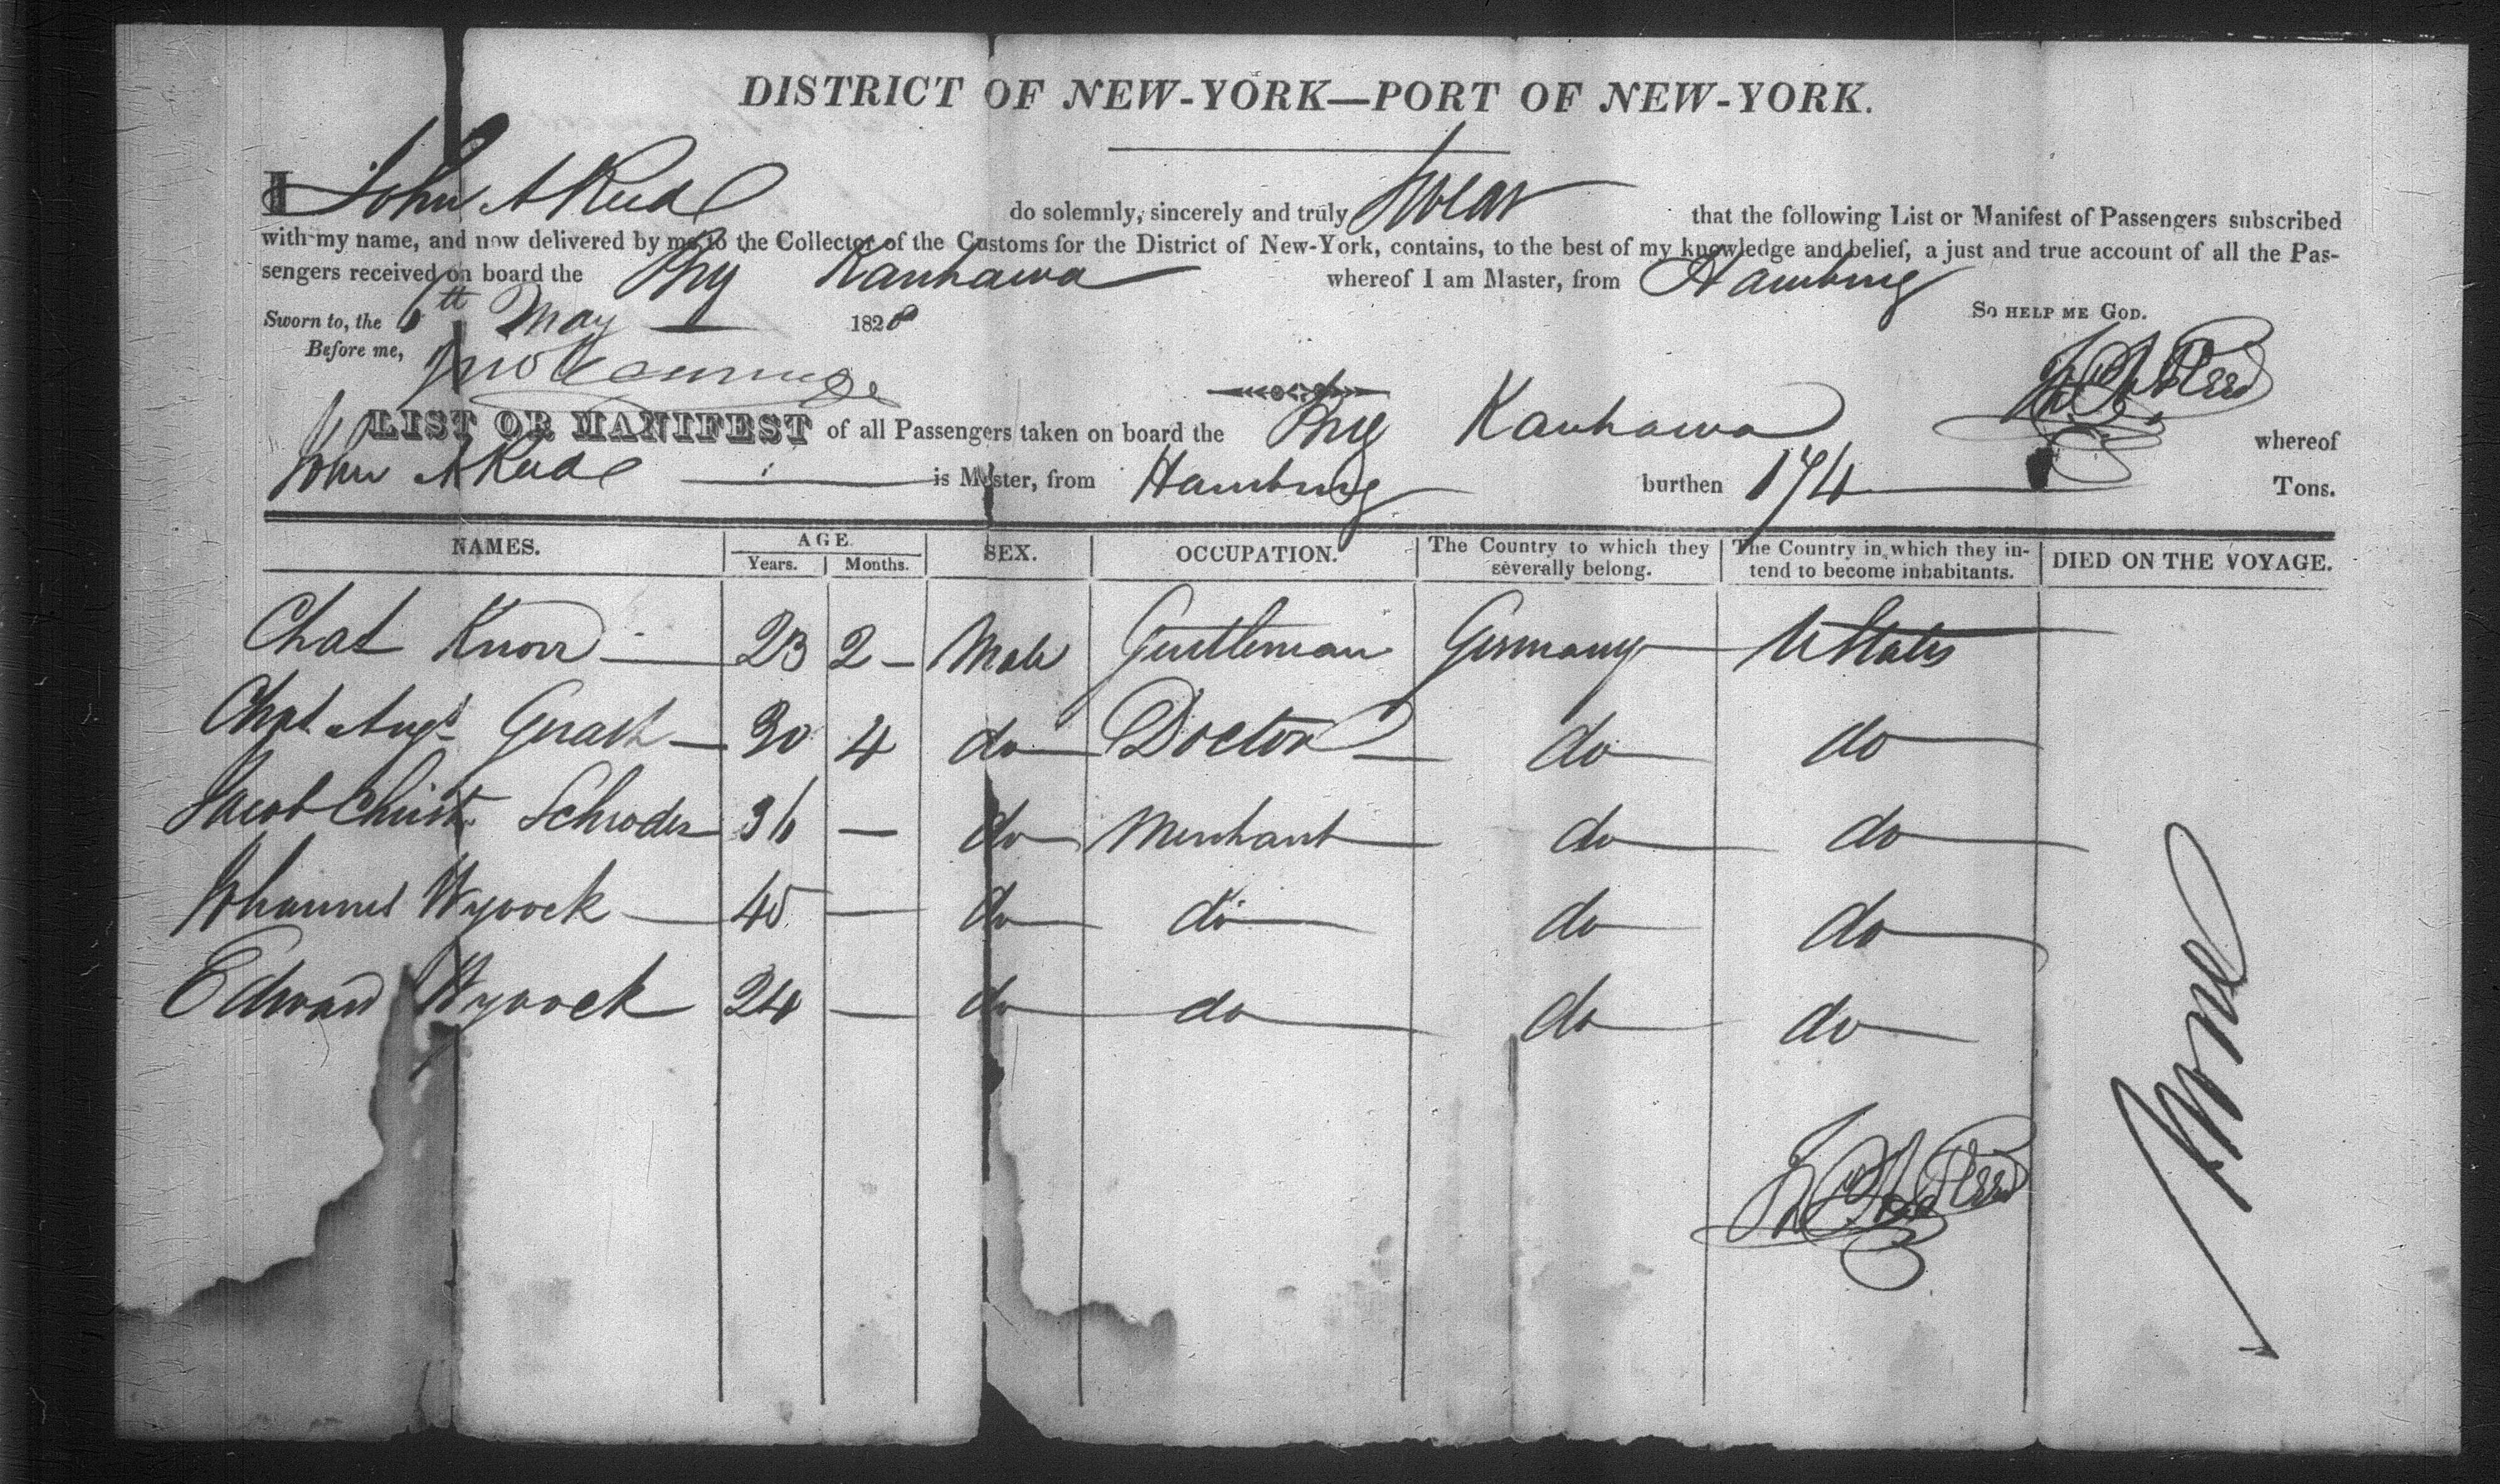 DISTRICT OF NEW-YORK—PORT OF NEW-YORK.
I John A Reed do solemnly, sincerely and truly swear that the following List or Manifest of Passengers subscribed
with my name, and now delivered by me to the Collector of the Customs for the District of New-York, contains, to the best of my knowledge and belief, a just and true account of all the Pas-
sengers received on board the Brig Kanhawa whereof I am Master, from Hamburg
So HELP ME GOD.
Sworn to, the 6th May 1828
Before me,
LIST OR MANIFEST of all Passengers taken on board the Brig Kanhawa whereof
John A Reed is Master, from Hamburg burthen 174 Tons.
NAMES. AGE. Years. Months. SEX. OCCUPATION. The Country to which they severally belong. The Country in which they in- tend to become inhabitants. DIED ON THE VOYAGE.
Knorr 23 2 Male Gentleman Germany U States
Augt 30 4 do Doctor do do
Jacob Christ. Schroder 36 — do Merchant do do
Johannes Wyvock 45 — do do do do
Edward Wyvock 24 — do do do do
None
Jn A Reed